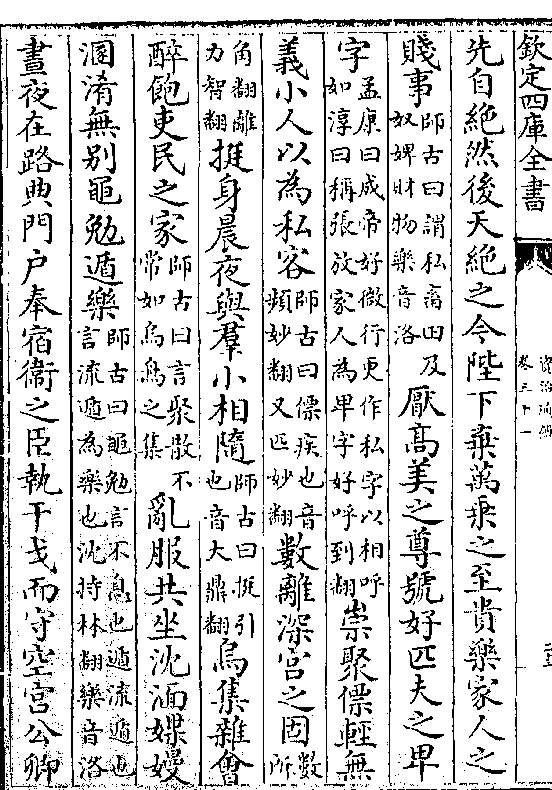 欽定四庫全書
資治通鑑
卷三十一
先自絶然後天絶之今陛下棄萬乗之至貴樂家人之
賤事師古曰謂私畜田及奴婢財物樂音洛厭髙美之尊號好匹夫之卑
字孟康曰成帝好微行更作私字以相呼如淳曰稱張放家人為卑字好呼到翻崇聚僄輕無
義小人以為私客師古曰僄疾也音頻妙翻又匹妙翻數離深宫之固數所
角翻離力智翻挺身晨夜與羣小相隨師古曰挺引也音大鼎翻烏集雜會
醉飽吏民之家師古曰言聚散不常如烏鳥之集亂服共坐沈湎媟嫚
溷淆無别黽勉遁樂師古曰黽勉言不息也遁流遁也言流遁為樂也沈持林翻樂音洛
晝夜在路典門户奉宿衛之臣執干戈而守空宫公卿